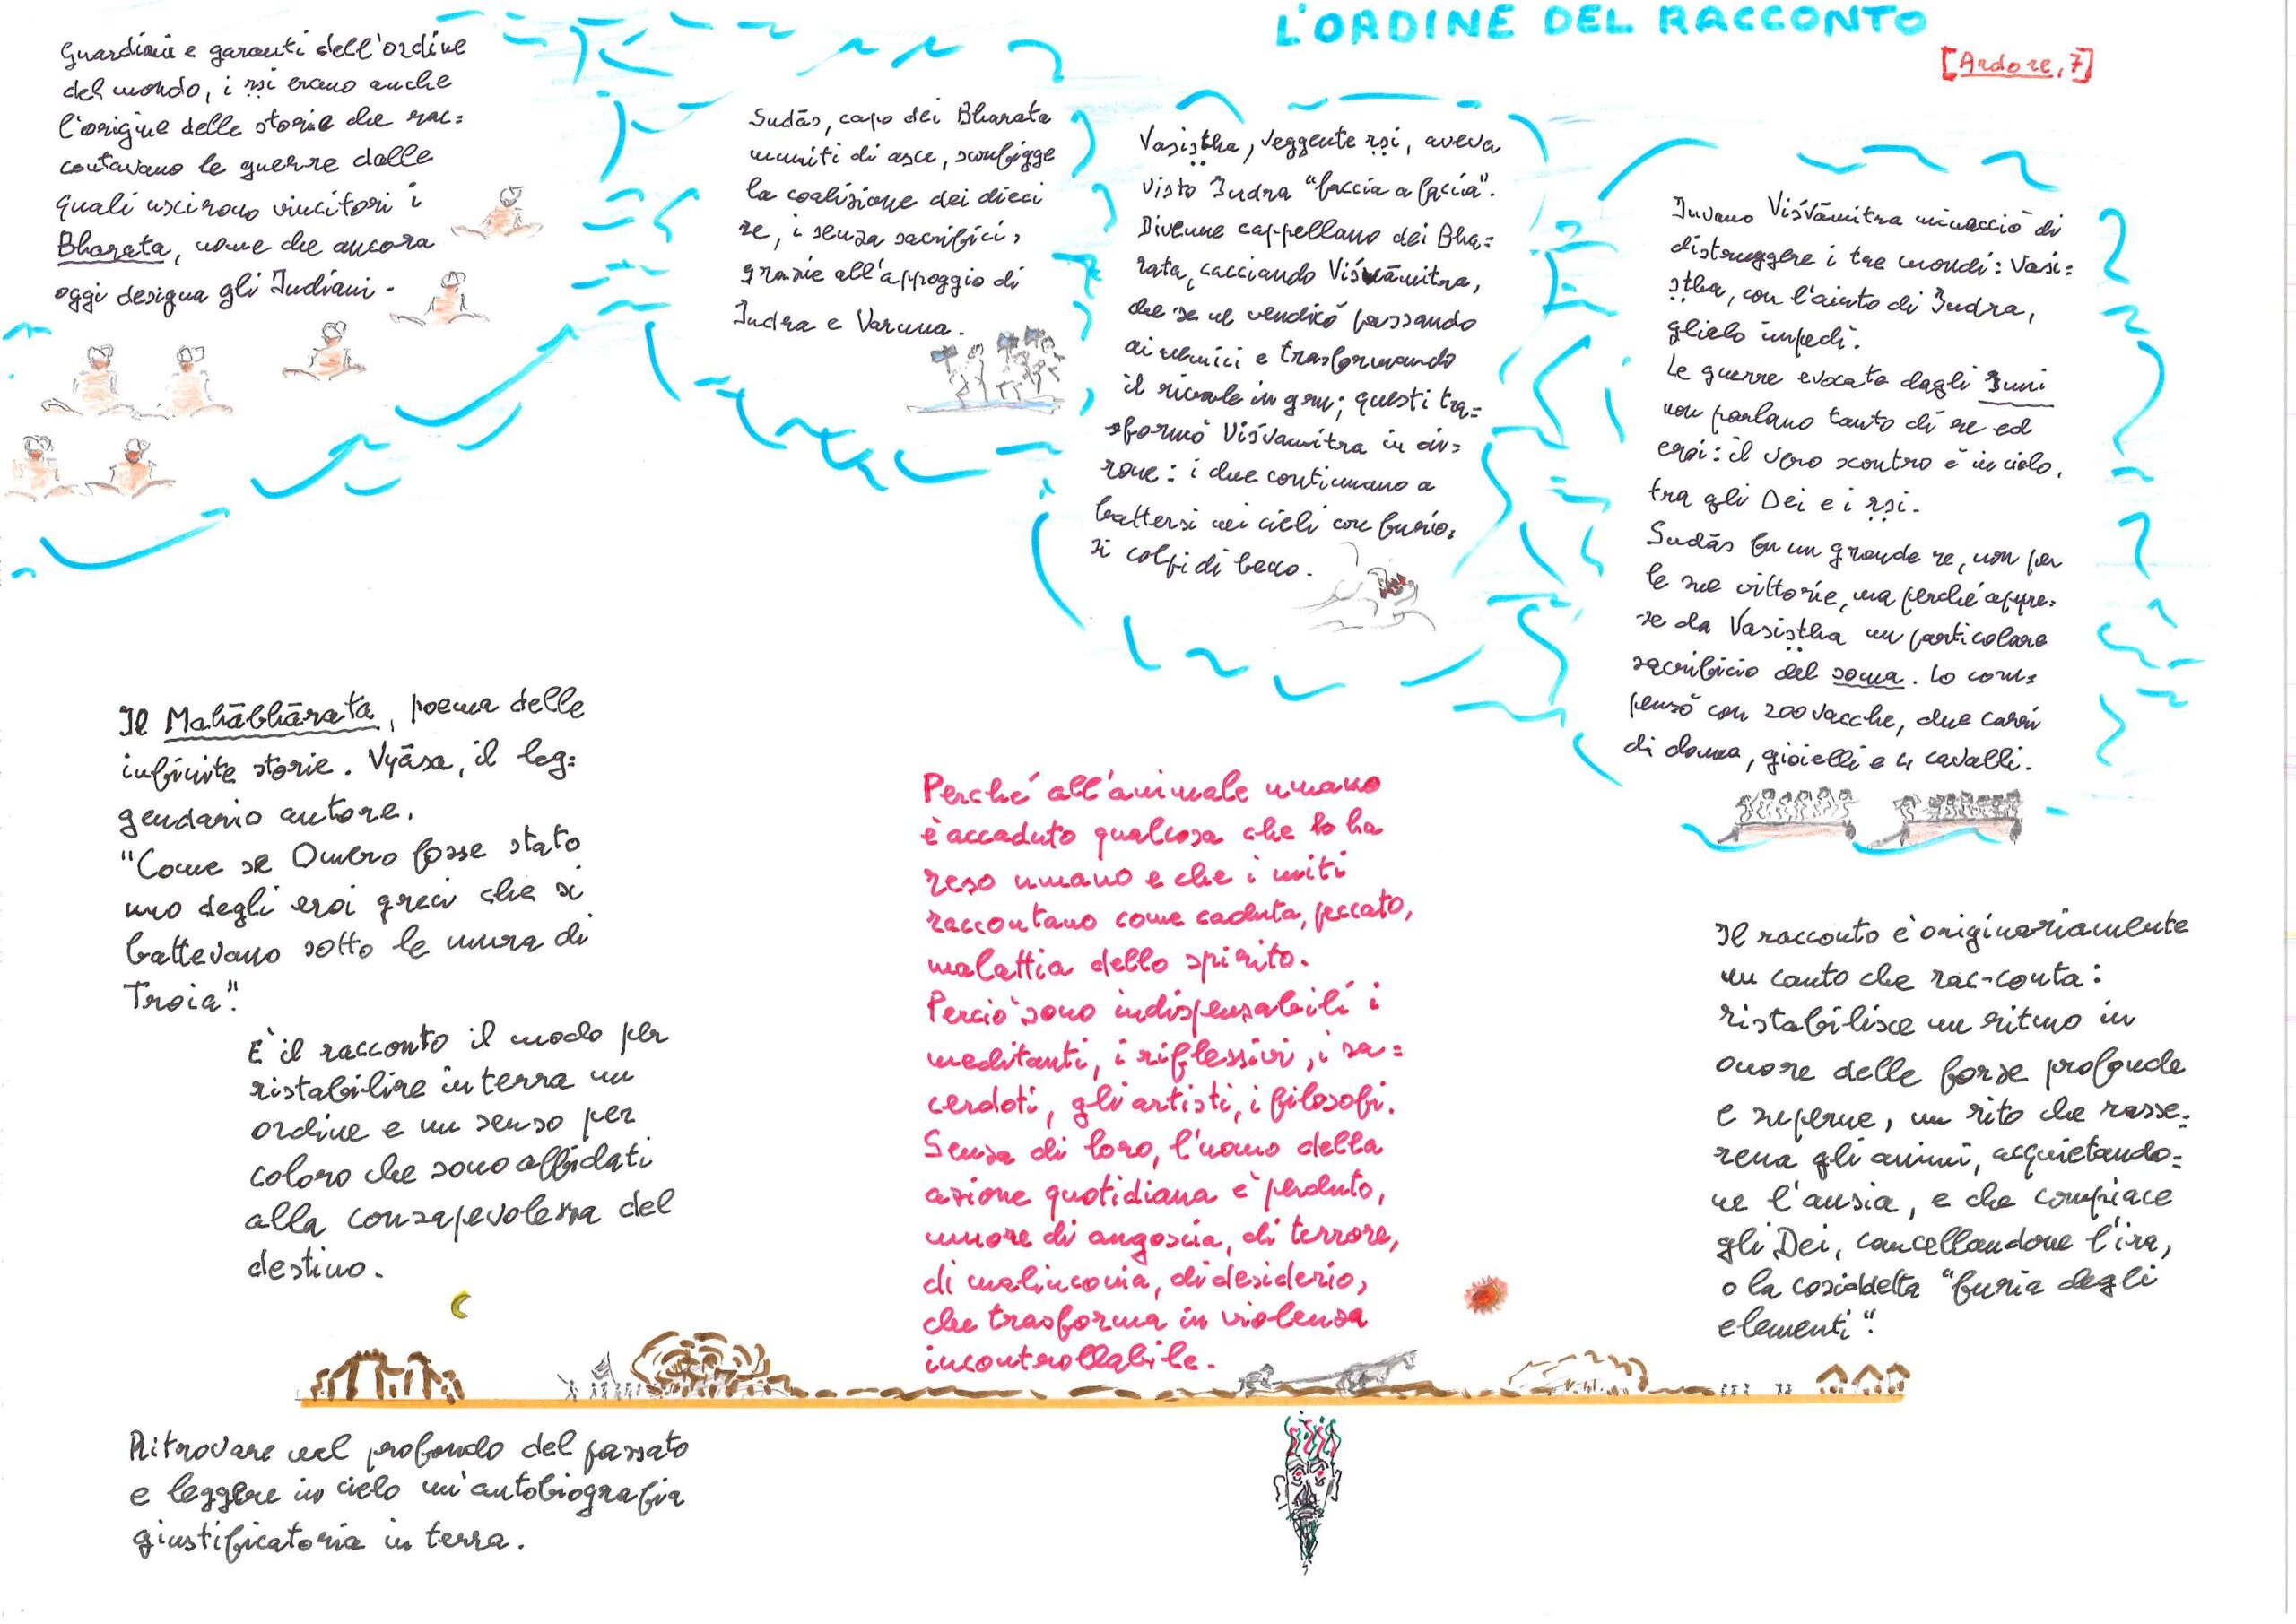 L'ORDINE DEL RACCONTO
[Ardore, 7]
Guardiani e garanti dell'ordine
del mondo, i ṛṣi erano anche
l'origine delle storie che rac=
contavano le guerre dalle
quali uscirono vincitori i
Bharata, nome che ancora
oggi designa gli Indiani.
Sudās, capo dei Bharata
muniti di asce, sconfigge
la coalizione dei dieci
re, i senza sacrifici,
grazie all'appoggio di
Indra e Varuna.
Vasiṣṭha, veggente ṛṣi, aveva
visto Indra "faccia a faccia".
Divenne cappellano dei Bha=
rata, cacciando Viśvāmitra,
che se ne vendicò passando
ai nemici e trasformando
il rivale in gru; questi tra=
sformò Viśvamitra in ai=
rone: i due continuano a
battersi nei cieli con furio=
si colpi di becco.
Invano Viśvāmitra minacciò di
distruggere i tre mondi: Vasi=
ṣṭha, con l'aiuto di Indra,
glielo impedì.
Le guerre evocate dagli Inni
non parlano tanto di re ed
eroi: il vero scontro è in cielo,
tra gli Dei e i ṛṣi.
Sudās fu un grande re, non per
le sue vittorie, ma perché appre=
se da Vasiṣṭha un particolare
sacrificio del soma. Lo com=
pensò con 200 vacche, due carri
di donna, gioielli e 4 cavalli.
Il Mahābhārata, poema delle
infinite storie. Vyāsa, il leg=
gendario autore.
"Come se Omero fosse stato
uno degli eroi greci che si
battevano sotto le mura di
Troia".
È il racconto il modo per
ristabilire in terra un
ordine e un senso per
coloro che sono affidati
alla consapevolezza del
destino.
Perché all'animale umano
è accaduto qualcosa che lo ha
reso umano e che i miti
raccontano come caduta, peccato,
malattia dello spirito.
Perciò sono indispensabili i
meditanti, i riflessivi, i sa=
cerdoti, gli artisti, i filosofi.
Senza di loro, l'uomo della
azione quotidiana è perduto,
muore di angoscia, di terrore,
di malinconia, di desiderio,
che trasforma in violenza
incontrollabile.
Il racconto è originariamente
un canto che rac-conta:
ristabilisce un ritmo in
onore delle forze profonde
e superne, un rito che rasse=
rena gli animi, acquietando=
ne l'ansia, e che compiace
gli Dei, cancellandone l'ira,
o la cosiddetta "furia degli
elementi".
Ritrovare nel profondo del passato
e leggere in cielo un'autobiografia
giustificatoria in terra.